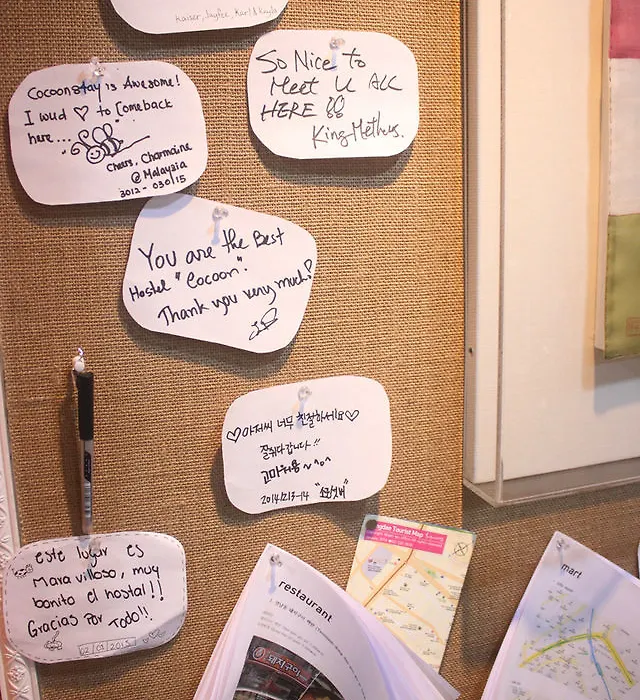 Kaiser, Jayfee, Karl & Kayla
Cocoonstay is Awesome!
I wud ♡ to Comeback
here...
Cheers, Charmaine
@ Malaysia
3012 - 030115
So Nice to
Meet U ALL
HERE
King-Methus.
You are the Best
Hostel "Cocoon".
Thank you very much!
♡아저씨 너무 친절하세요♡
잘쉬다갑니다!!
고마워용~^o^
2014/12/13-14
este lugar es
Maravilloso, muy
bonito el hostal!!
Gracias Por Todo!!
02/03/2015
gdae Tourist Map
restaurant
돼지구이
mart